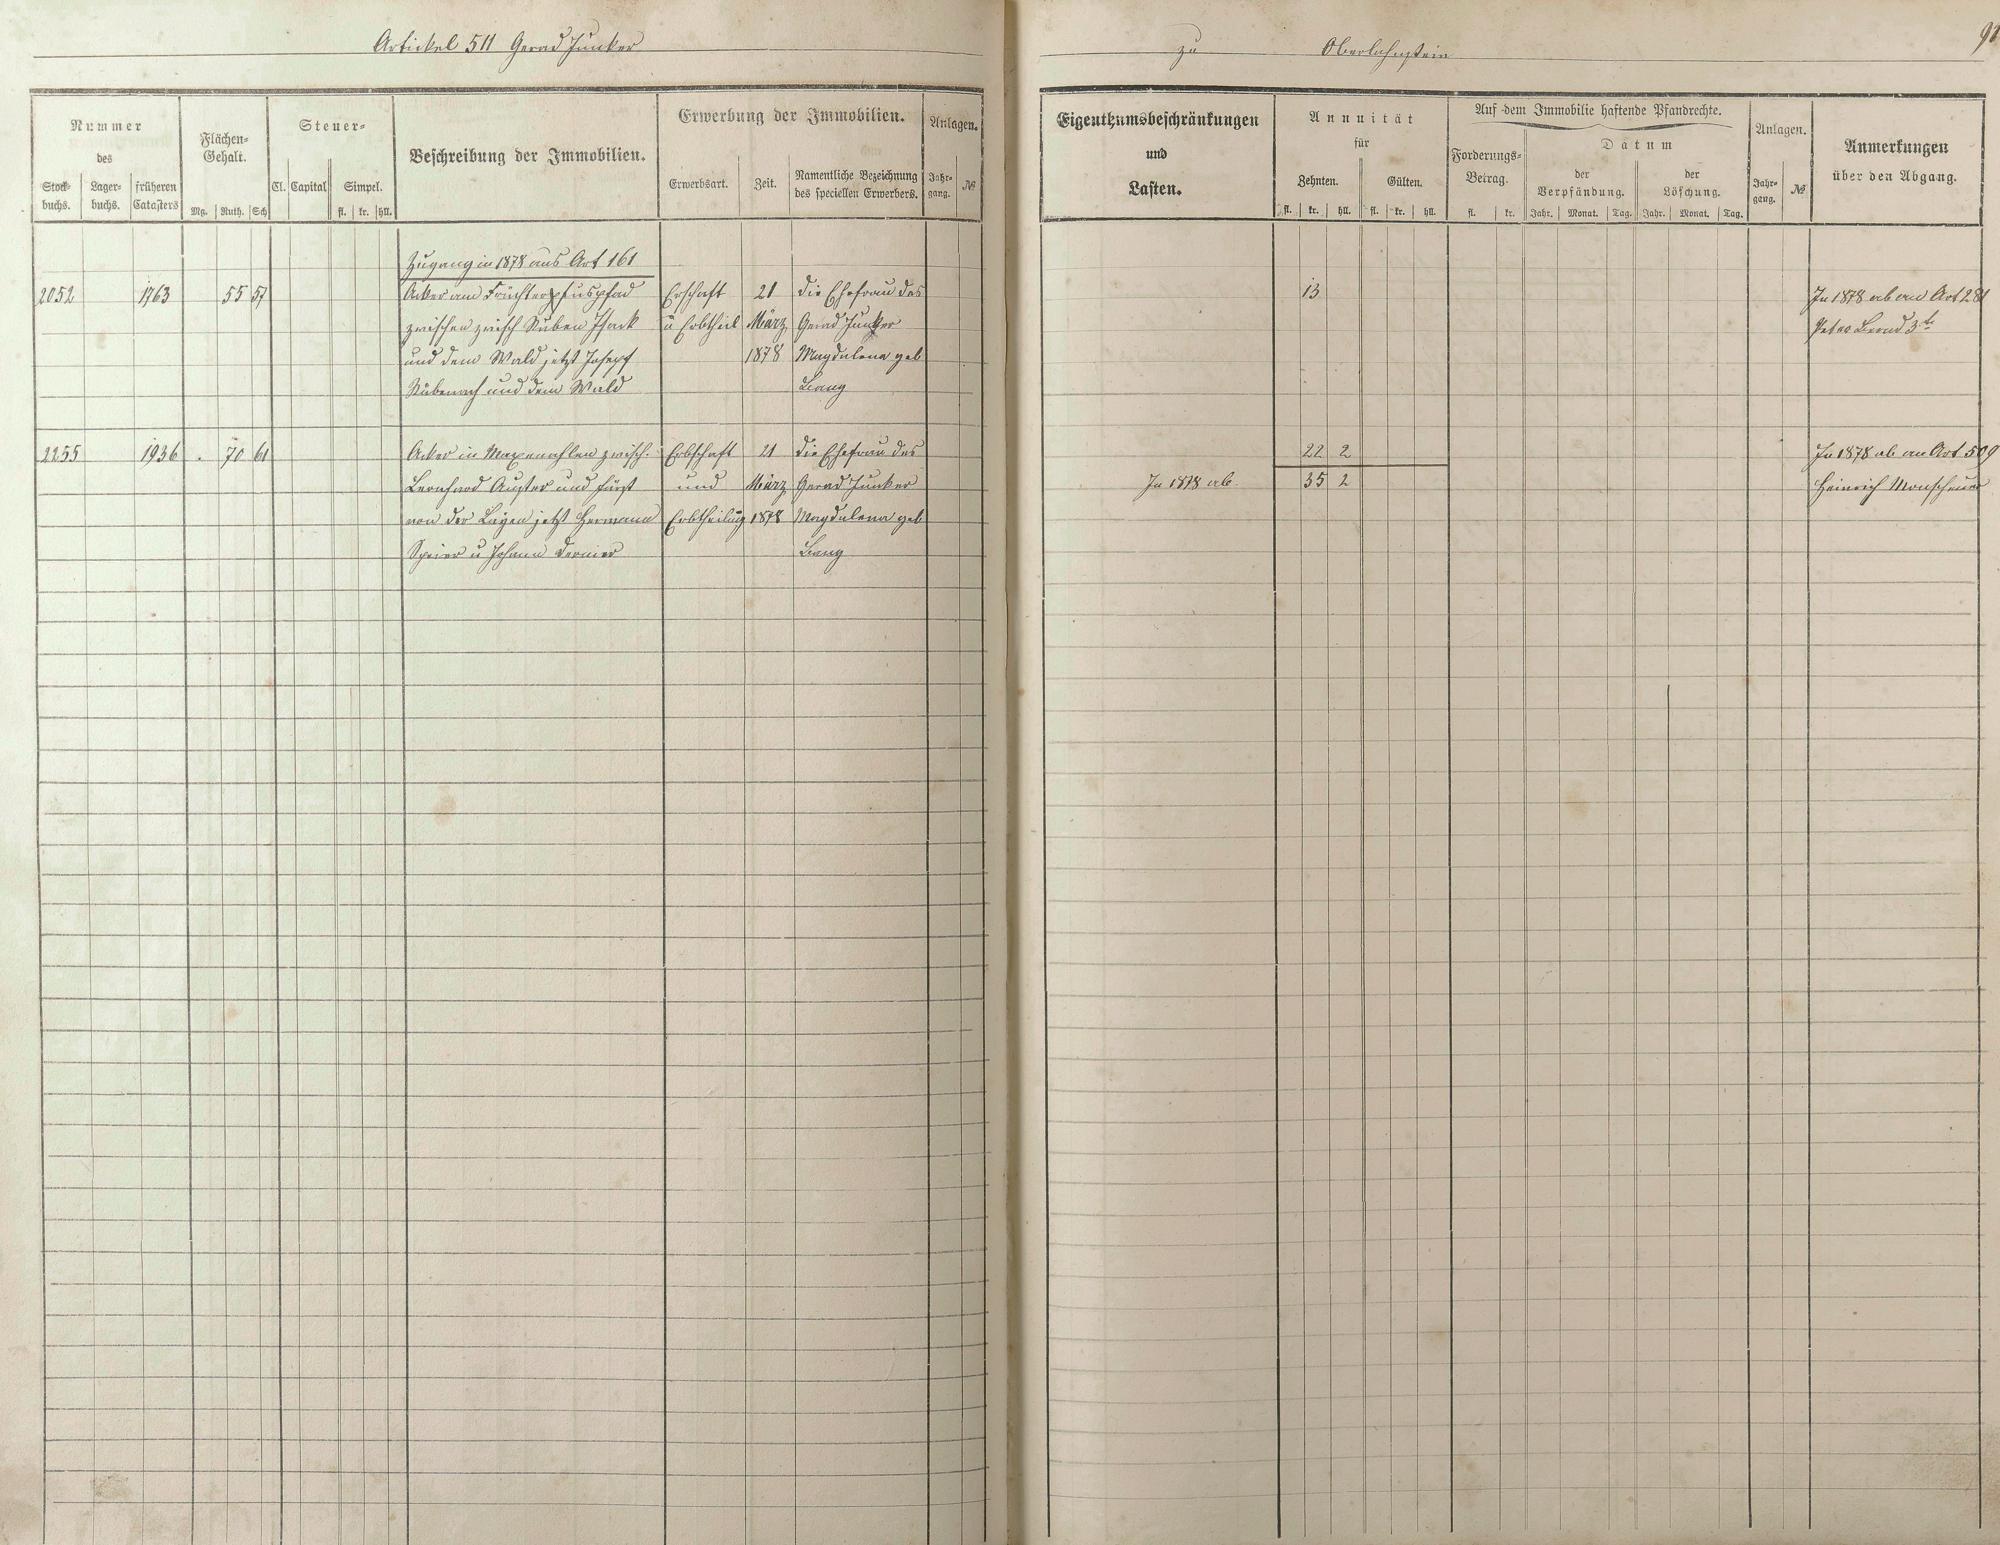 Artickel 511 Gerad Junker
zu Oberlahnstein
Nummer
des
Stock-
buchs.
Lager-
buchs.
früheren
Catasters
Flächen-
Gehalt.
Mg. Ruth. Sch
Steuer-
Cl. Capital Simpel.
fl. kr. hll.
Beschreibung der Immobilien.
Erwerbung der Immobilien.
Erwerbsart. Zeit.
Namentliche Bezeichnung
des speciellen Erwerbers.
Anlagen.
Jahr-
gang.
№
Eigenthumsbeschränkungen
und
Lasten.
Annuität
für
Zehnten. Gülten.
fl. kr. hll. fl. kr. hll.
Auf dem Immobilie haftende Pfandrechte.
Forderungs-
Betrag.
fl. kr.
Datum
der
Verpfändung.
Jahr. Monat. Tag.
der
Löschung.
Jahr. Monat. Tag.
Anlagen.
Jahr-
gang.
№
Anmerkungen
über den Abgang.
Zugang in 1878 aus Art 161
2052 1763 55 57 Acker am Erbschaft 21 die Ehefrau des 13 In 1878 ab an Art 281
zwischen zwisch Ruben Isack u Erbtheil März Gerad Junker Peter Bernd 3te
und dem Wald jetzt Josepf 1878 Magdalena geb
Rübenach und dem Wald Bang
2255 1936 . 70 61 Acker in zwisch. Erbschaft 21 die Ehefrau des 22 2 In 1878 ab an Art 509
Bernhard Auster und fürst und März Gerad Junker In 1878 ab. 35 2 Heinrich Monschauer
von der Leyen jetzt Hermann Erbtheilug 1878 Magdalena geb
Speier u Johann Bang